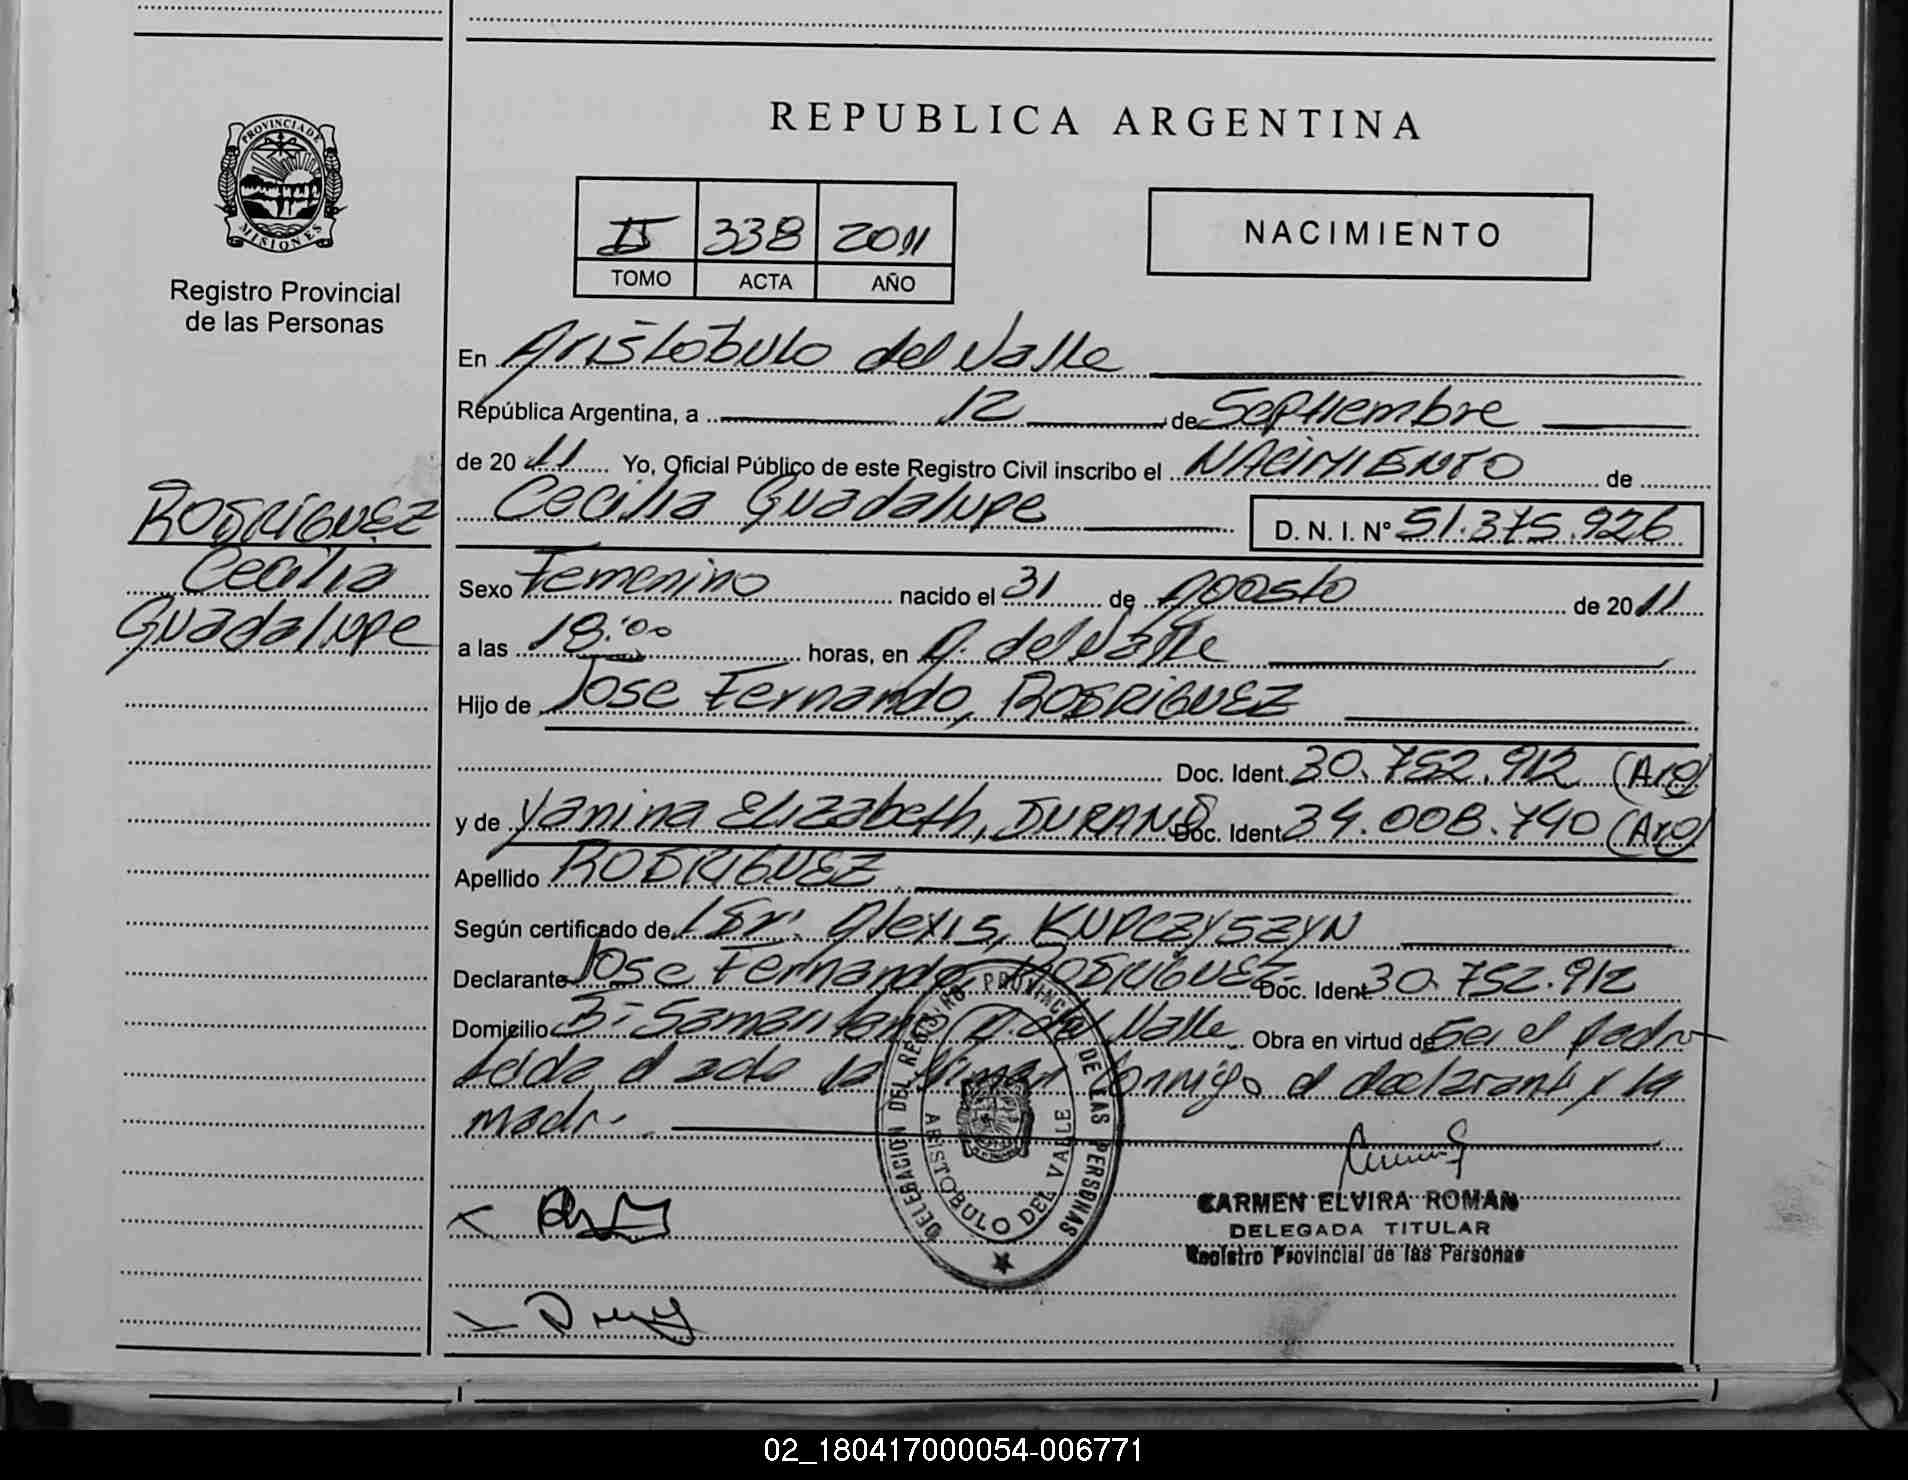 REPUBLICA ARGENTINA
PROVINCIA DE
MISIONES
Registro Provincial
de las Personas
II 338 2011
TOMO ACTA AÑO
NACIMIENTO
En Aristóbulo del Valle
República Argentina, a 12 de Septiembre
de 2011 Yo, Oficial Público de este Registro Civil inscribo el NACIMIENTO de
Cecilia Guadalupe D. N. I. N° 51.375.926
RODRIGUEZ
Cecilia
Guadalupe
Sexo Femenino nacido el 31 de Agosto de 2011
a las 18:00 horas, en A. del Valle
Hijo de Jose Fernando, RODRIGUEZ
Doc. Ident. 30.752.912 (Arg)
y de Yanina Elizabeth, DURAND Doc. Ident. 34.008.740 (Arg)
Apellido RODRIGUEZ
Según certificado de Alexis, KUPCZYSZYN
Declarante Jose Fernando RODRIGUEZ Doc. Ident. 30.752.912
Domicilio Bº Samaritano A. del Valle Obra en virtud de Ser el padre
Leida el acta la firman conmigo el declarante y la
madre
DELEGACION DEL REGISTRO PROVINCIAL DE LAS PERSONAS
ARISTOBULO DEL VALLE
CARMEN ELVIRA ROMAN
DELEGADA TITULAR
Registro Provincial de las Personas
02_180417000054-006771